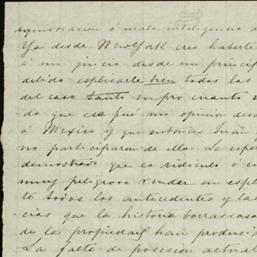 equivocación ó mala inteligencia d
Ya desde New York creo haberte
á mi juicio desde un princip
debido esplicarle bien todas las
del caso tanto en pro cuanto e
do que ese fué mi opinion desd
á Mexico y que entonces Juan
no participaron de ella. La espe
demostrado que es ridículo ó en
muy peligroso vender sin espl
te todos los antecedentes y las
cias que la historia borrascosa
de la propiedad han producid
La falta de posesión actual